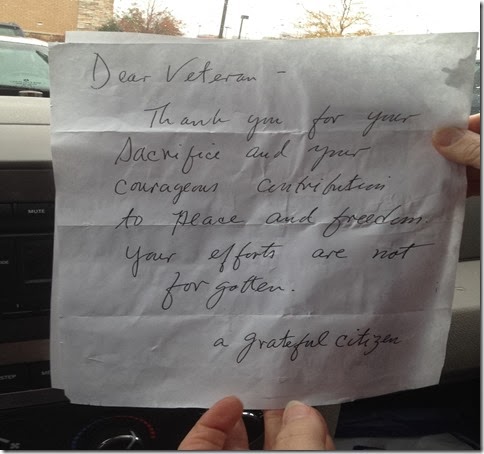 Dear Veteran -
Thank you for your
sacrifice and your
courageous contribution
to peace and freedom.
Your efforts are not
forgotten.
a grateful citizen
MUTE